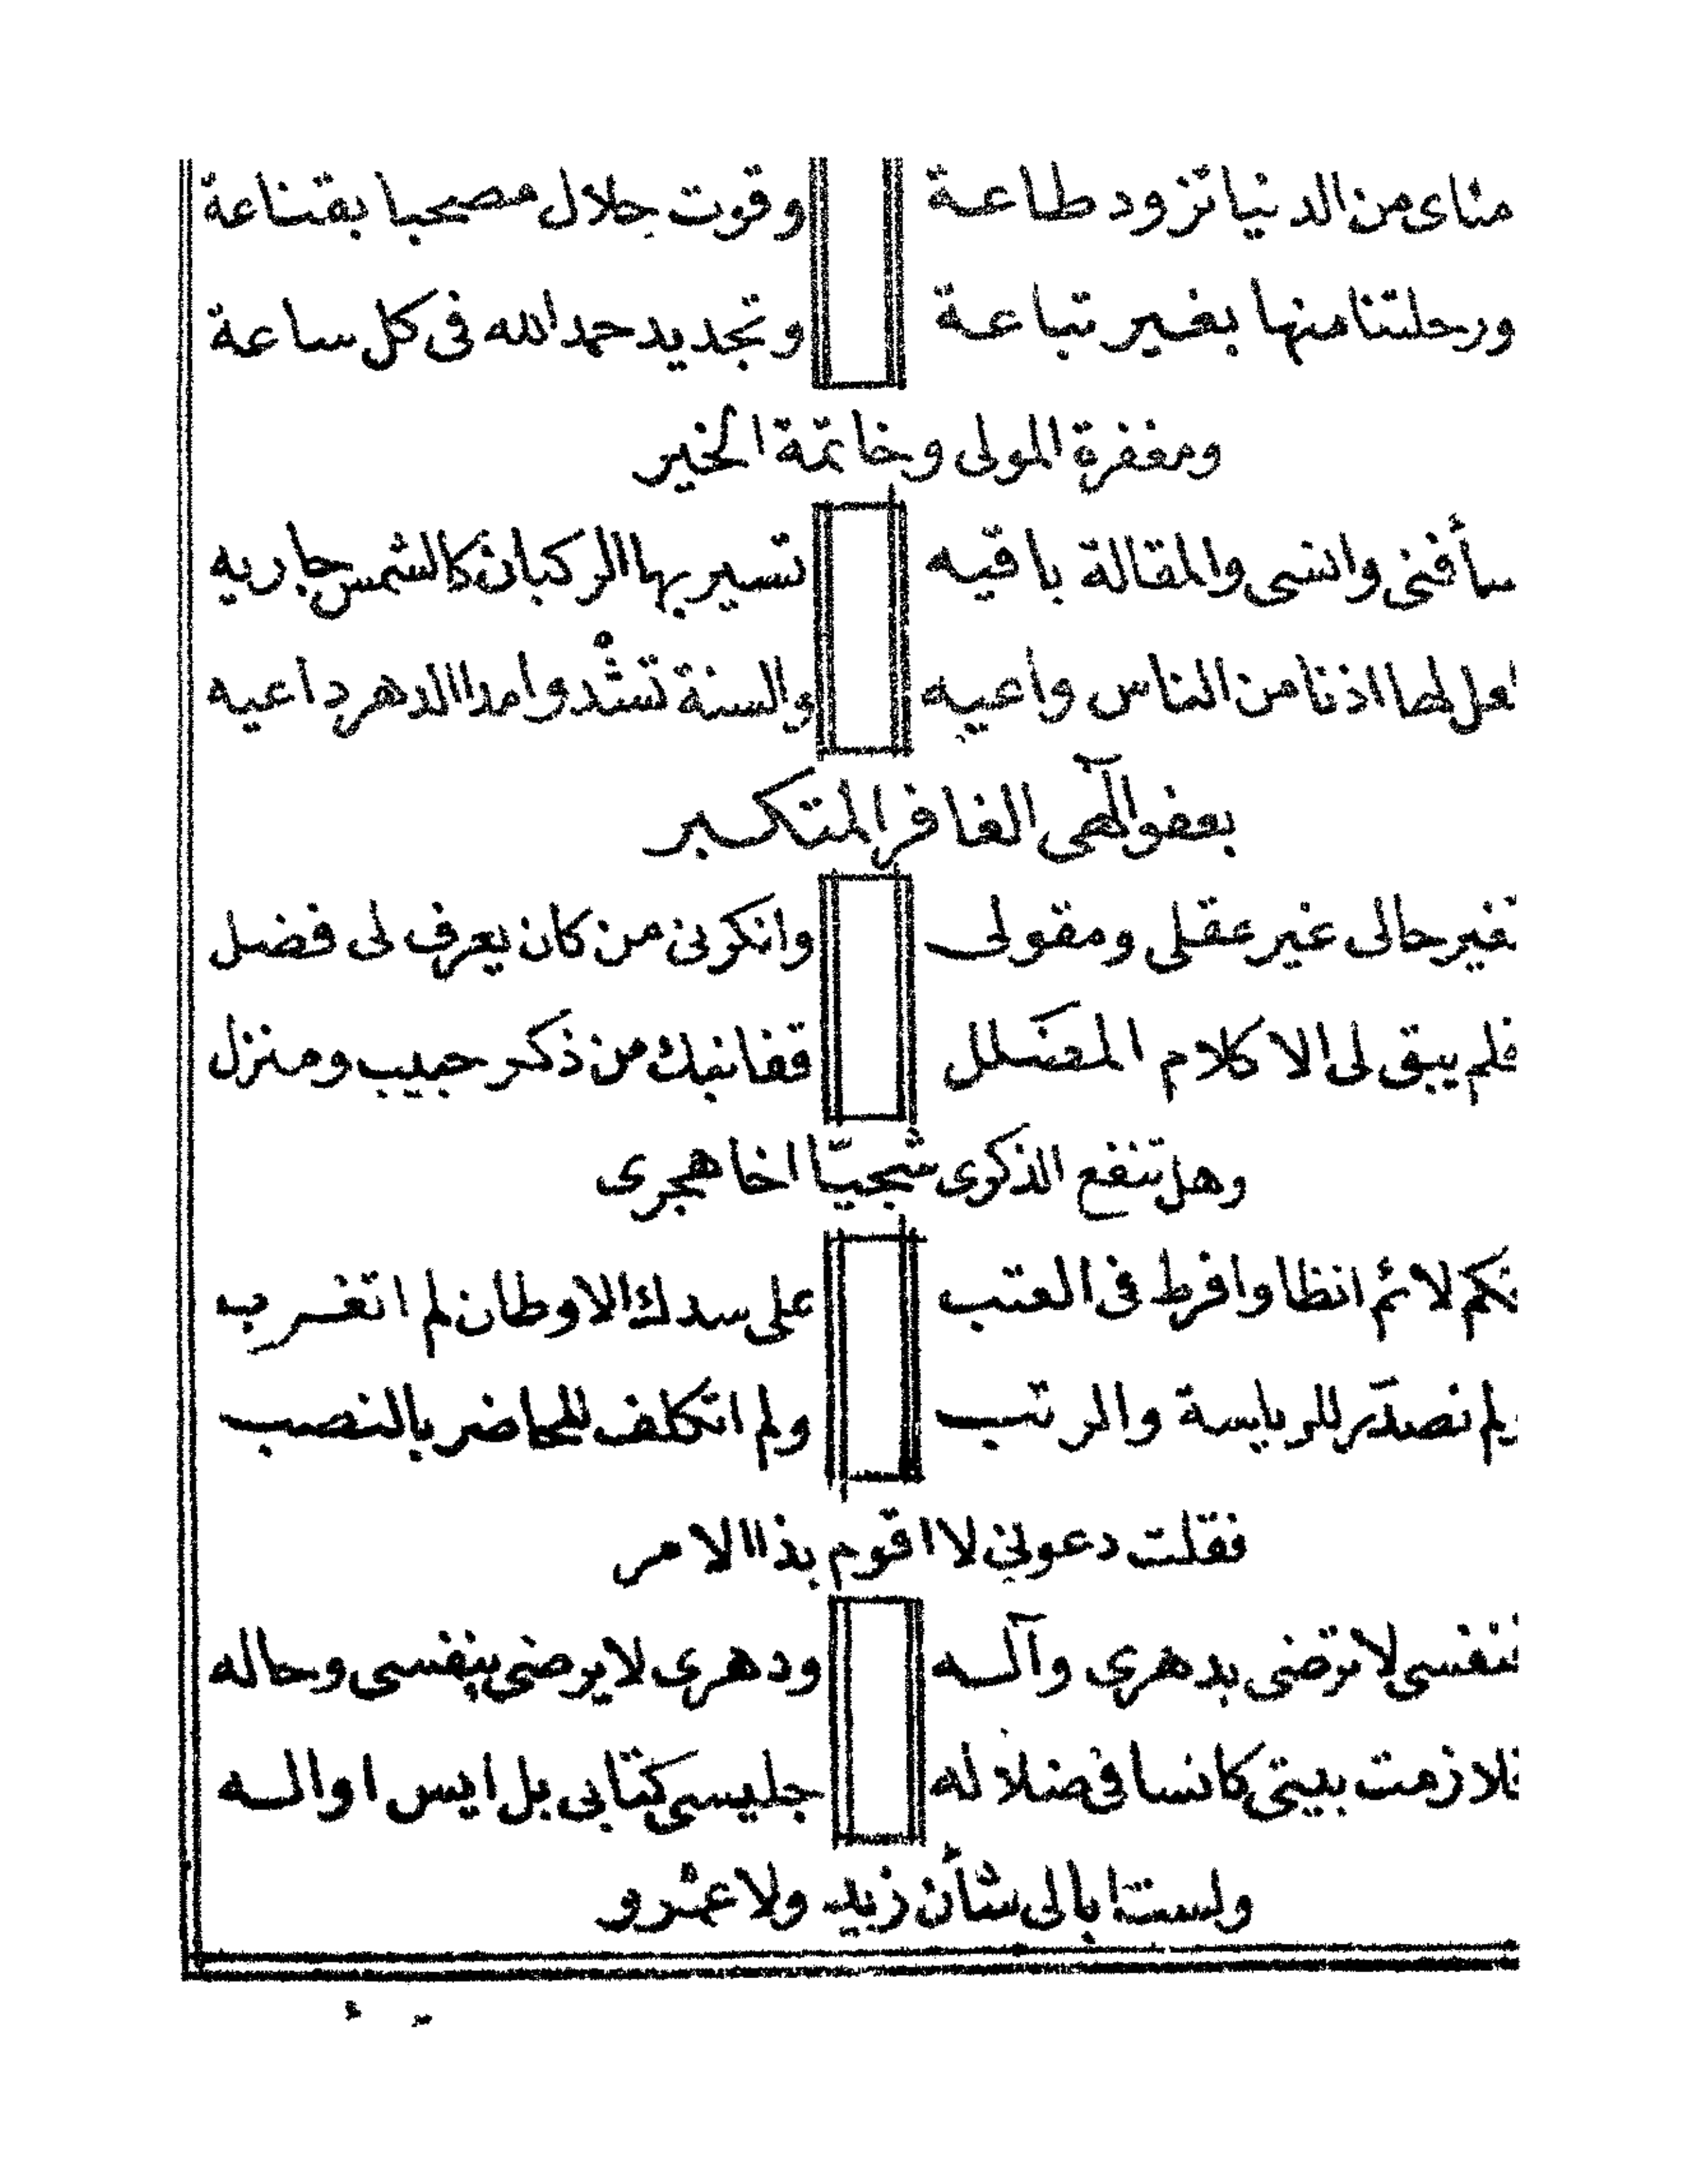 مناى من الدنيا تزود طاعة وقوت حلال مصحبا بقناعة
ورحلتنا منها بغير تباعة وتجديد حمد الله فى كل ساعة
ومغفرة المولى وخاتمة الخير
سأفنى وانسى والمقالة باقيه تسير بها الركبان كالشمس جاريه
لعل لها اذنا من الناس واعيه والسنة تشدو امدا الدهر داعيه
بعفو آلهى الغافر المتكبر
تغير حالى غير عقلى ومقولى وانكرنى من كان يعرف لى فضل
فلم يبق لى الا كلام المضلل قفانبك من ذكر حبيب ومنزل
وهل تنفع الذكرى شجيّا اخا هجرى
لائم انظا وافرط فى العتب على سدك الاوطان لم اتغرب
ولم نصدّر للرياسة والرتب ولم اتكلف للمحاضر بالنصب
فقلت دعونى لا اقوم بذا الامر
فنفسى لا ترضى بدهرى وآله ودهرى لا يرضى بنفسى وحاله
فلازمت بيتى كانسا فى ضلاله جليسى كتابى بل ايس اواله
ولست ابالى شأن زيد ولا عمرو